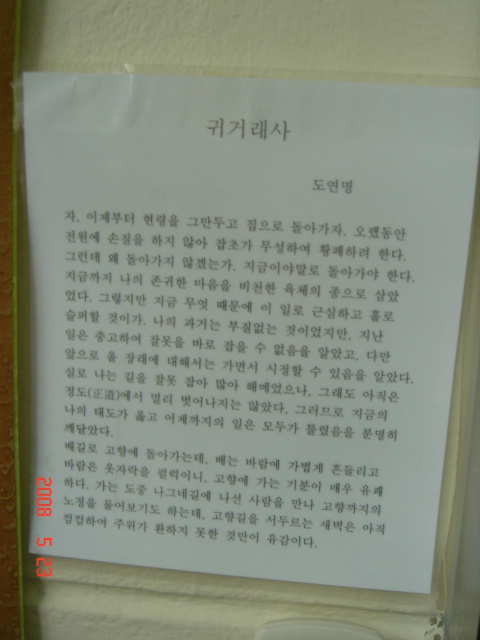 귀거래사
도연명
자, 이제부터 현령을 그만두고 집으로 돌아가자. 오랬동안
전원에 손질을 하지 않아 잡초가 무성하여 황폐하려 한다.
그런데 왜 돌아가지 않겠는가. 지금이야말로 돌아가야 한다.
지금까지 나의 존귀한 마음을 비천한 육체의 종으로 삼았
었다. 그렇지만 지금 무엇 때문에 이 일로 근심하고 홀로
슬퍼할 것이가. 나의 과거는 부질없는 것이었지만, 지난
일은 충고하여 잘못을 바로 잡을 수 없음을 알았고, 다만
앞으로 올 장래에 대해서는 가면서 시정할 수 있음을 알았다.
실로 나는 길을 잘못 잡아 많아 해메었으나, 그래도 아직은
정도(正道)에서 멀리 벗어나지는 않았다, 그러므로 지금의
나의 태도가 옳고 어제까지의 일은 모두가 틀렸음을 분명히
깨달았다.
배길로 고향에 돌아가는데, 배는 바람에 가볍게 흔들리고
바람은 옷자락을 펄럭이니, 고향에 가는 기분이 매우 유쾌
하다. 가는 도중 나그네길에 나선 사람을 만나 고향까지의
노정을 물어보기도 하는데, 고향길을 서두르는 새벽은 아직
컴컴하여 주위가 환하지 못한 것만이 유감이다.
2008 5 23